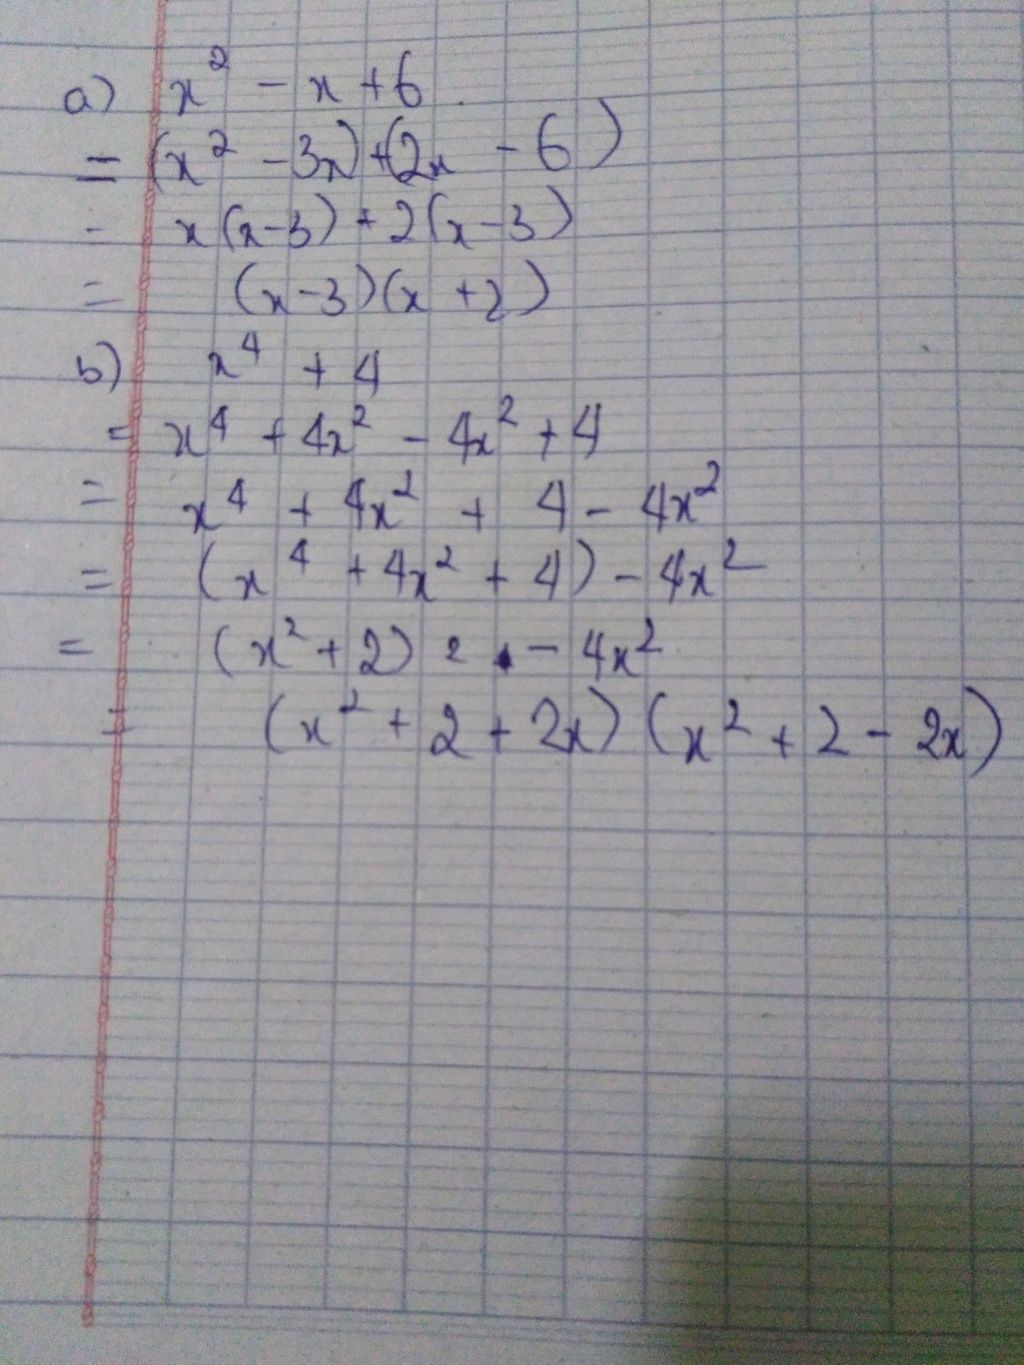 a) x² - x + 6
= (x² - 3x) + (2x - 6)
= x(x-3) + 2(x-3)
= (x-3)(x+2)
b) x⁴ + 4
= x⁴ + 4x² - 4x² + 4
= x⁴ + 4x² + 4 - 4x²
= (x⁴ + 4x² + 4) - 4x²
= (x² + 2)² - 4x²
= (x² + 2 + 2x)(x² + 2 - 2x)